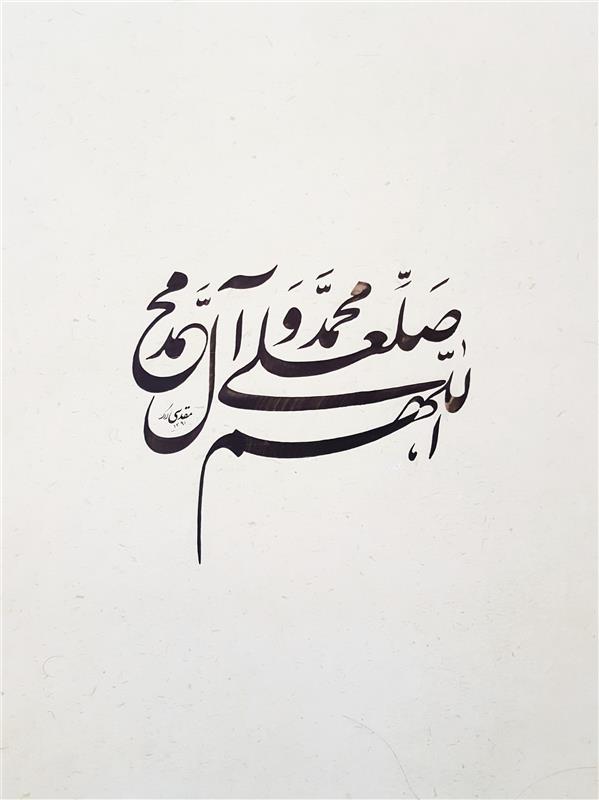 اللّٰهم
صَلِّ علی محمَّد وَ آل محَمَّد
مقدسی